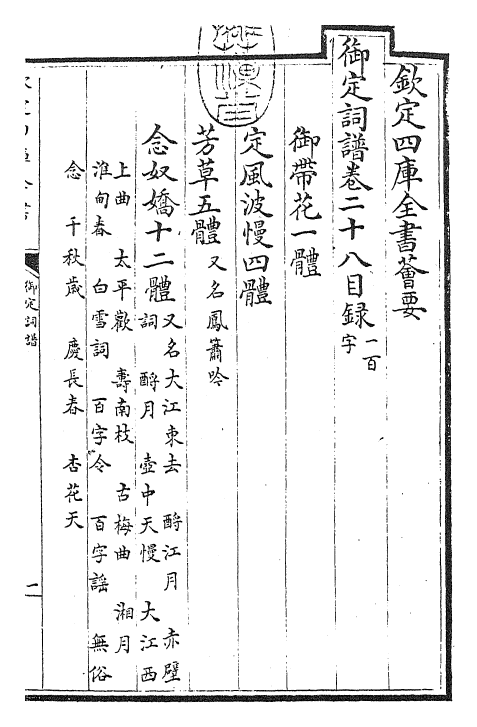 欽定四庫全書薈要
御定詞譜卷二十八目録 一百
字
御帶花一體
定風波慢四體
芳草五體 又名鳳簫吟
念奴嬌十二體 又名大江東去 酹江月 赤壁
詞 酹月 壺中天慢 大江西
上曲 太平歡 壽南枝 古梅曲 湘月
淮甸春 白雪詞 百字令 百字謡 無俗
念 千秋歲 慶長春 杏花天
御定詞譜
一